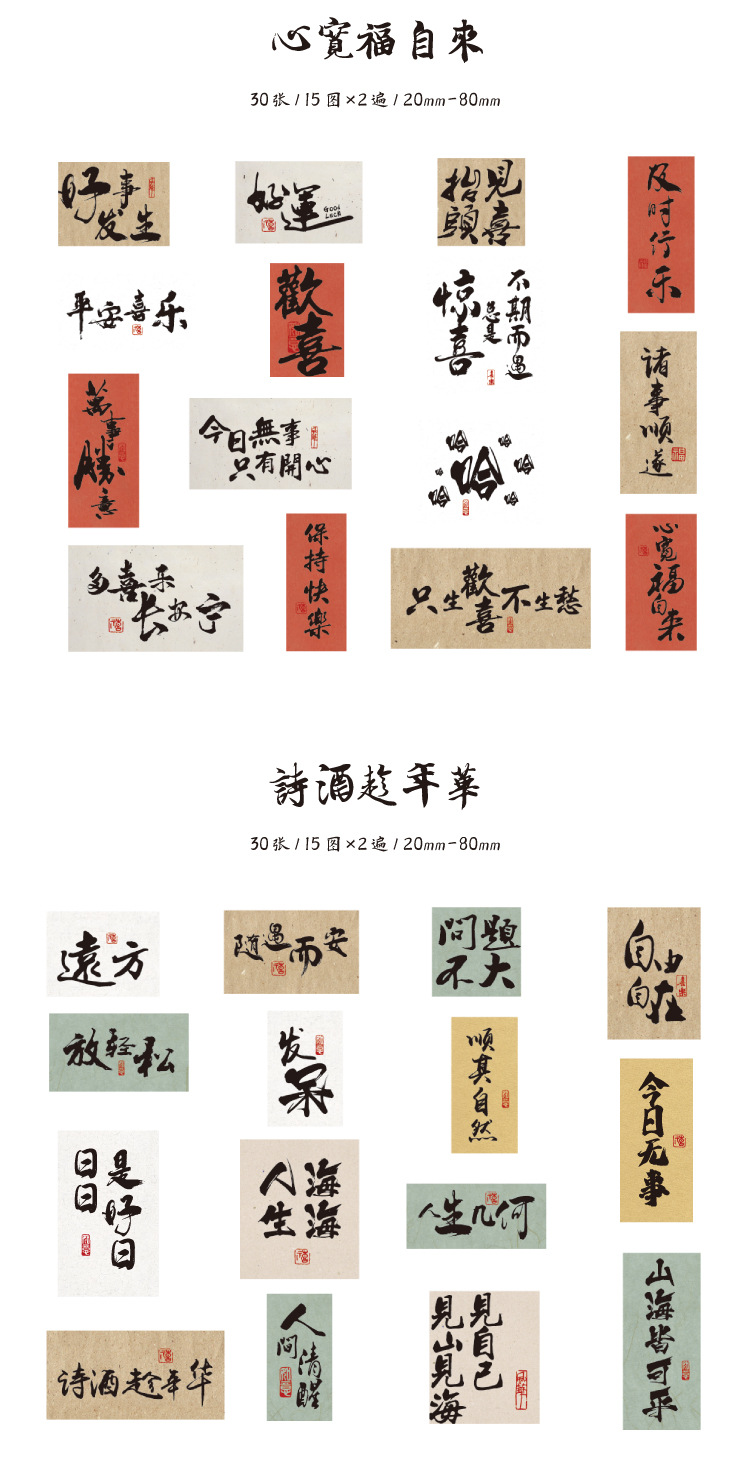 心寬福自來
30张/15图×2遍/20mm-80mm
好事
发生
好運
GOOD
LUCK
見喜
抬頭
及时行乐
平安喜乐
歡喜
不期而遇
总是
惊喜
諸事順遂
萬事勝意
今日無事
只有開心
哈
哈
哈
哈
哈
哈
哈
保持快樂
多喜乐
长安宁
只生歡喜不生愁
心寬福自来
詩酒趁年華
30张/15图×2遍/20mm-80mm
遠方
随遇而安
問題
不大
自由
自在
放轻松
发呆
順其自然
今日无事
是好日
日日
人海海
生海海
人生几何
山海皆可平
詩酒趁年华
人間清醒
見自己
見山見海